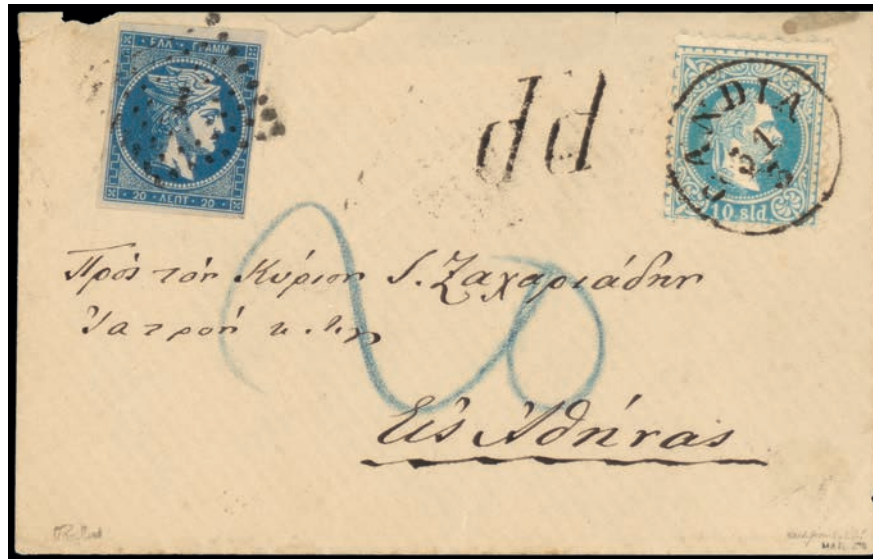 ΕΛΛ. ΓΡΑΜΜ.
20 ΛΕΠΤ. 20
pp
CANDIA
31
3
10 sld.
20
Πρὸς τὸν Κύριον Ζαχαριάδην
Ἰατρὸν κ.τ.λ.
Εἰς Ἀθήνας